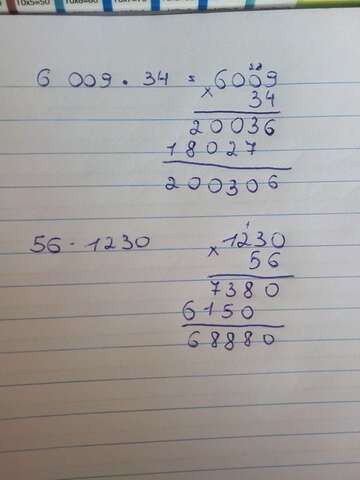 10x5=50
6 009 · 34 = 6009
× 34
20036
18027
200306
56 · 1230
1230
× 56
7380
6150
68880